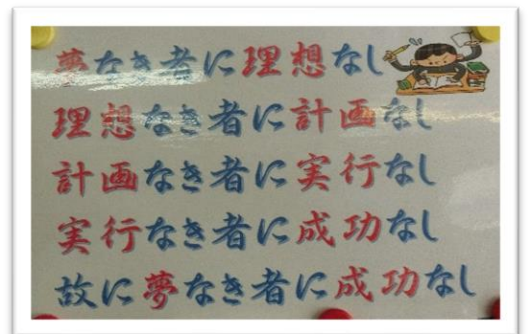 夢なき者に理想なし
理想なき者に計画なし
計画なき者に実行なし
実行なき者に成功なし
故に夢なき者に成功なし